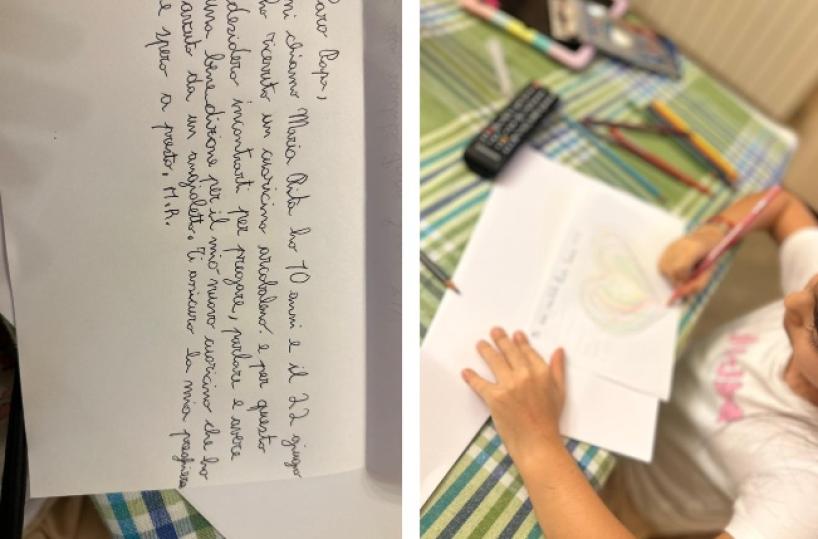 Caro Papa,
mi chiamo Maria Rita ho 10 anni e il 22 giugno
ho ricevuto un cuoricino arcobaleno. e per questo
desidero incontrarti per pregare, parlare e avere
una benedizione per il mio nuovo cuoricino che ho
avuto da un angioletto. Ti assicuro la mia preghiera
e spero a presto. M.R.